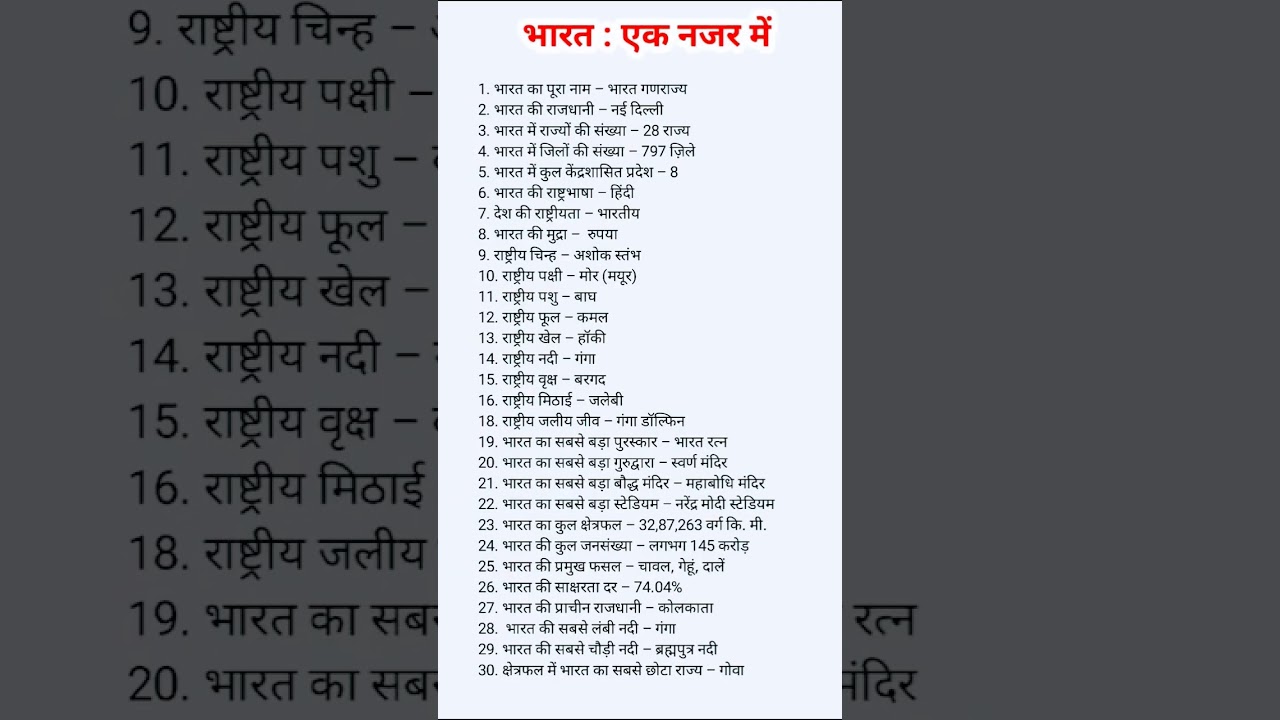 भारत : एक नजर में
1. भारत का पूरा नाम – भारत गणराज्य
2. भारत की राजधानी – नई दिल्ली
3. भारत में राज्यों की संख्या – 28 राज्य
4. भारत में जिलों की संख्या – 797 ज़िले
5. भारत में कुल केंद्रशासित प्रदेश – 8
6. भारत की राष्ट्रभाषा – हिंदी
7. देश की राष्ट्रीयता – भारतीय
8. भारत की मुद्रा – रुपया
9. राष्ट्रीय चिन्ह – अशोक स्तंभ
10. राष्ट्रीय पक्षी – मोर (मयूर)
11. राष्ट्रीय पशु – बाघ
12. राष्ट्रीय फूल – कमल
13. राष्ट्रीय खेल – हॉकी
14. राष्ट्रीय नदी – गंगा
15. राष्ट्रीय वृक्ष – बरगद
16. राष्ट्रीय मिठाई – जलेबी
18. राष्ट्रीय जलीय जीव – गंगा डॉल्फिन
19. भारत का सबसे बड़ा पुरस्कार – भारत रत्न
20. भारत का सबसे बड़ा गुरुद्वारा – स्वर्ण मंदिर
21. भारत का सबसे बड़ा बौद्ध मंदिर – महाबोधि मंदिर
22. भारत का सबसे बड़ा स्टेडियम – नरेंद्र मोदी स्टेडियम
23. भारत का कुल क्षेत्रफल – 32,87,263 वर्ग कि. मी.
24. भारत की कुल जनसंख्या – लगभग 145 करोड़
25. भारत की प्रमुख फसल – चावल, गेहूं, दालें
26. भारत की साक्षरता दर – 74.04%
27. भारत की प्राचीन राजधानी – कोलकाता
28. भारत की सबसे लंबी नदी – गंगा
29. भारत की सबसे चौड़ी नदी – ब्रह्मपुत्र नदी
30. क्षेत्रफल में भारत का सबसे छोटा राज्य – गोवा
9. राष्ट्रीय चिन्ह –
10. राष्ट्रीय पक्षी –
11. राष्ट्रीय पशु –
12. राष्ट्रीय फूल –
13. राष्ट्रीय खेल –
14. राष्ट्रीय नदी –
15. राष्ट्रीय वृक्ष –
16. राष्ट्रीय मिठाई
18. राष्ट्रीय जलीय
19. भारत का सब रत्न
20. भारत का सब मंदिर